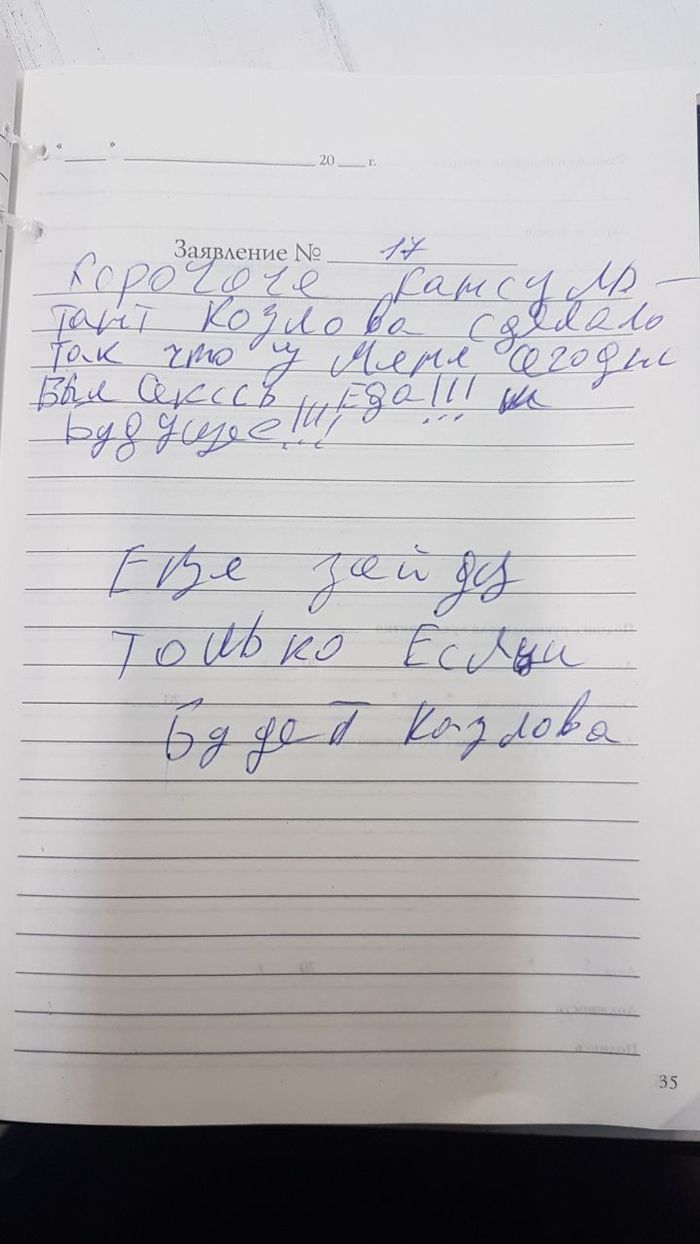 « » 20 г.
Заявление № 17
Корочоче кансуль-
тант Козлова сделало
так что у меня сегодня
был секссь, еда!!! и
будущее!!!
Еще зайду
только если
будет Казлова
35